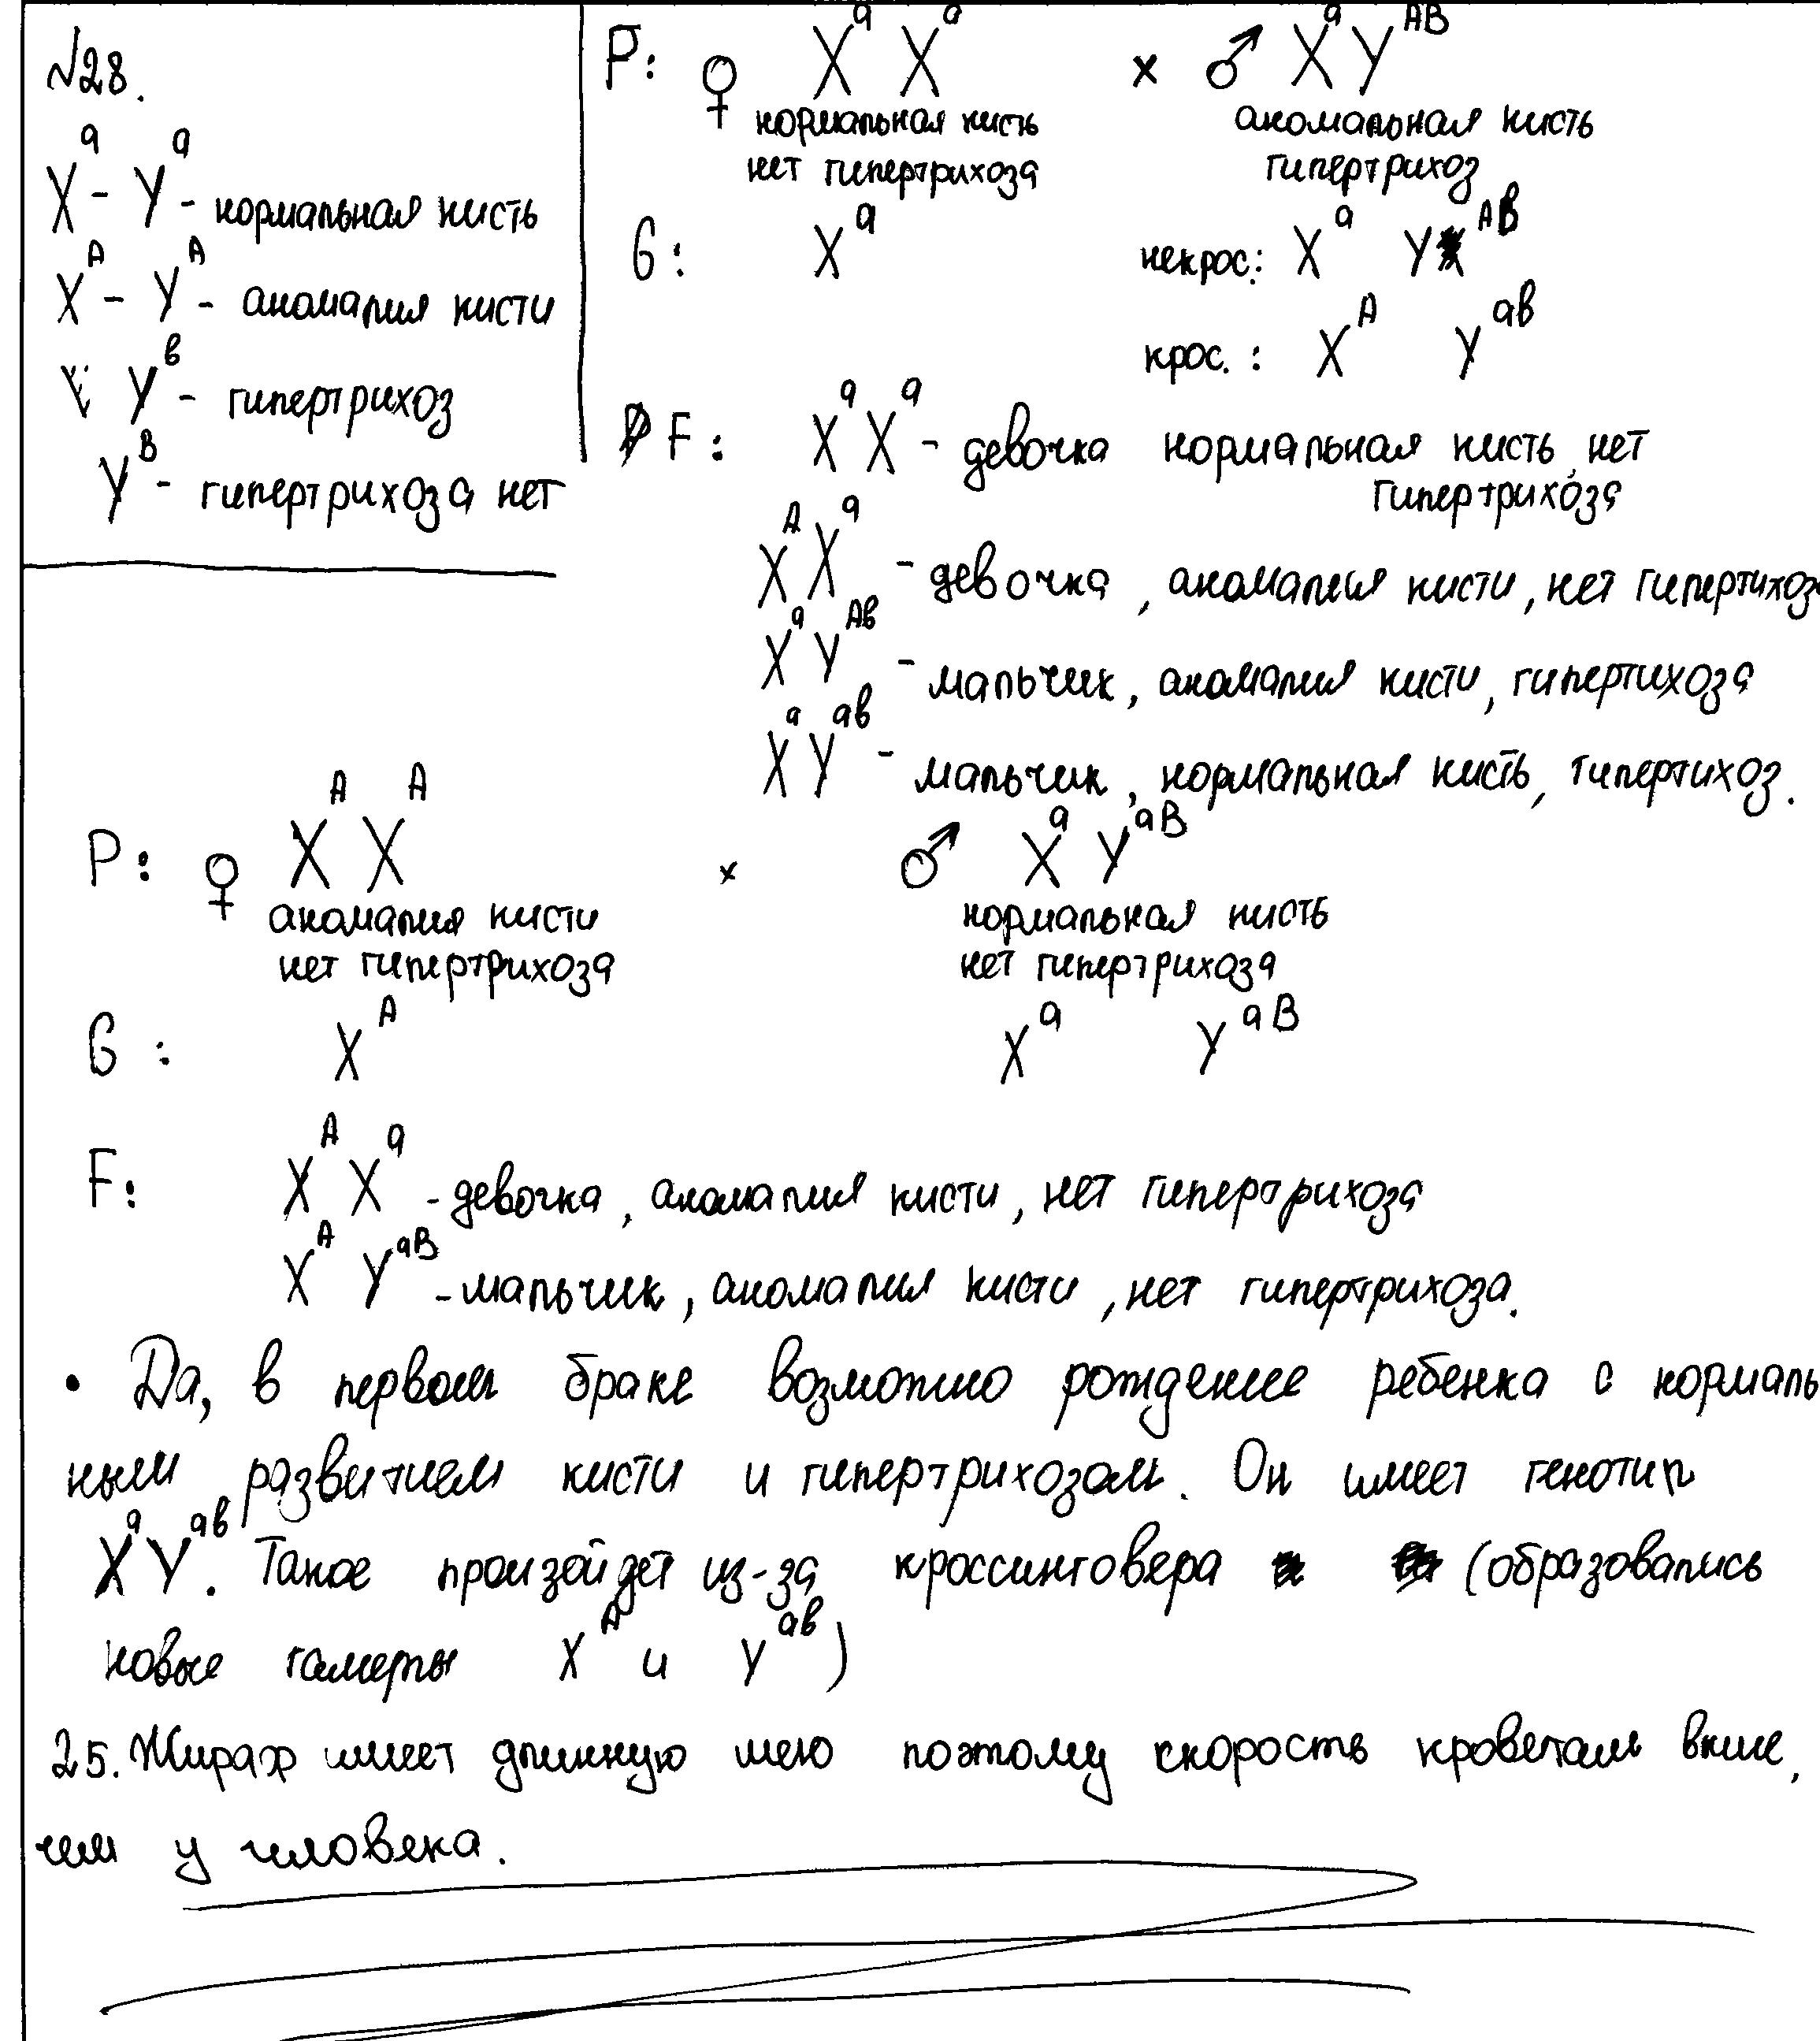 №28.
X^a - Y^a - нормальная кисть
X^A - Y^A - аномалия кисти
Y^b - гипертрихоз
Y^B - гипертрихоза нет
P: ♀ X^a X^a × ♂ X^a Y^AB
нормальная кисть аномальная кисть
нет гипертрихоза гипертрихоз
G: X^a некрос.: X^a Y^AB
крос.: X^A Y^ab
F: X^a X^a - девочка нормальная кисть, нет
гипертрихоза
X^A X^a - девочка, аномалия кисти, нет гипертихоза
X^a Y^Ab - мальчик, аномалия кисти, гипертихоза
X^a Y^ab - мальчик, нормальная кисть, гипертихоз.
P: ♀ X^A X^A × ♂ X^a Y^aB
аномалия кисти нормальная кисть
нет гипертрихоза нет гипертрихоза
G: X^A X^a Y^aB
F: X^A X^a - девочка, аномалия кисти, нет гипертрихоза
X^A Y^aB - мальчик, аномалия кисти, нет гипертрихоза.
• Да, в первом браке возможно рождение ребенка с нормаль
ным развитием кисти и гипертрихозом. Он имеет генотип
X^a Y^ab. Такое произойдет из-за кроссинговера (образовались
новые гаметы X^A и Y^ab)
25. Жираф имеет длинную шею поэтому скорость кроветам выше,
чем у человека.